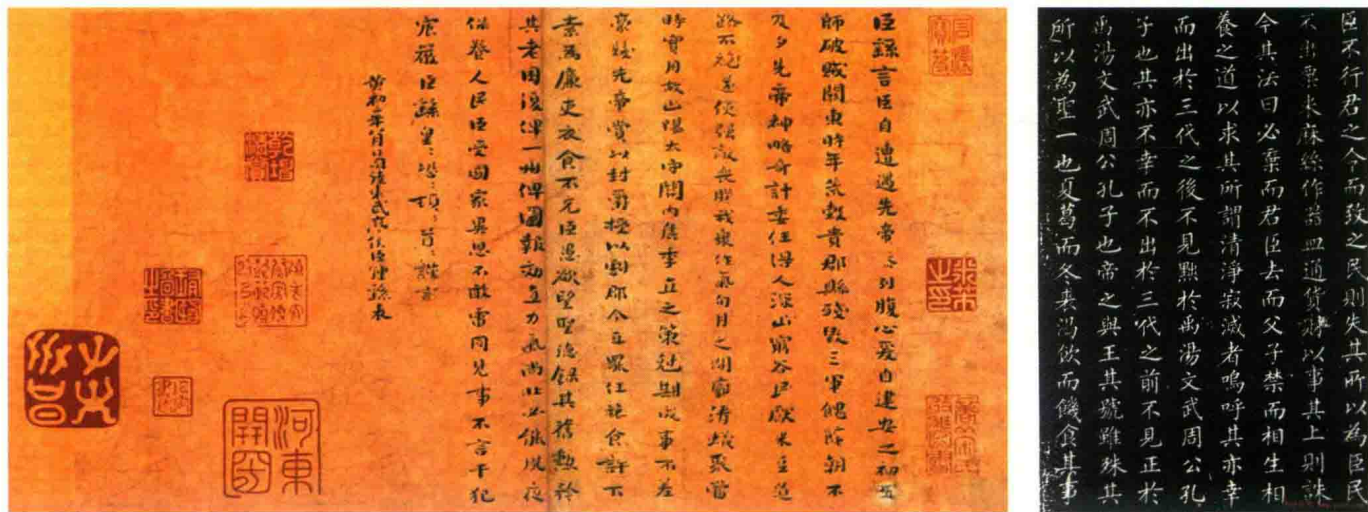 臣繇言臣自遭遇先帝忝列腹心爰自建安之初王
師破賊關東時年荒穀貴郡縣殘毀三軍餽饟朝不
及夕先帝神略奇計委任得人深山窮谷民獻米豆道
路不絕遂使強敵喪膽我衆作氣旬月之間廓清蟻聚當
時實用故山陽太守關內侯季直之策剋期成事不差
豪髮先帝賞以封爵授以劇郡今直罷任旅食許下
素為廉吏衣食不充臣愚欲望聖德錄其舊勳矜
其老困復俾一州俾圖報效直力氣尚壯必能夙夜
保養人民臣受國家異恩不敢雷同見事不言干犯
宸嚴臣繇皇〻恐〻頓〻首〻謹言
黃初二年八月日司徒東武亭侯臣鍾繇表
河東
臣不行君之令而致之民則失其所以為臣民
不出粟米麻絲作器皿通貨財以事其上則誅
今其法曰必棄而君臣去而父子禁而相生相
養之道以求其所謂清淨寂滅者嗚呼其亦幸
而出於三代之後不見黜於禹湯文武周公孔
子也其亦不幸而不出於三代之前不見正於
禹湯文武周公孔子也帝之與王其號雖殊其
所以為聖一也夏葛而冬裘渴飲而饑食其事